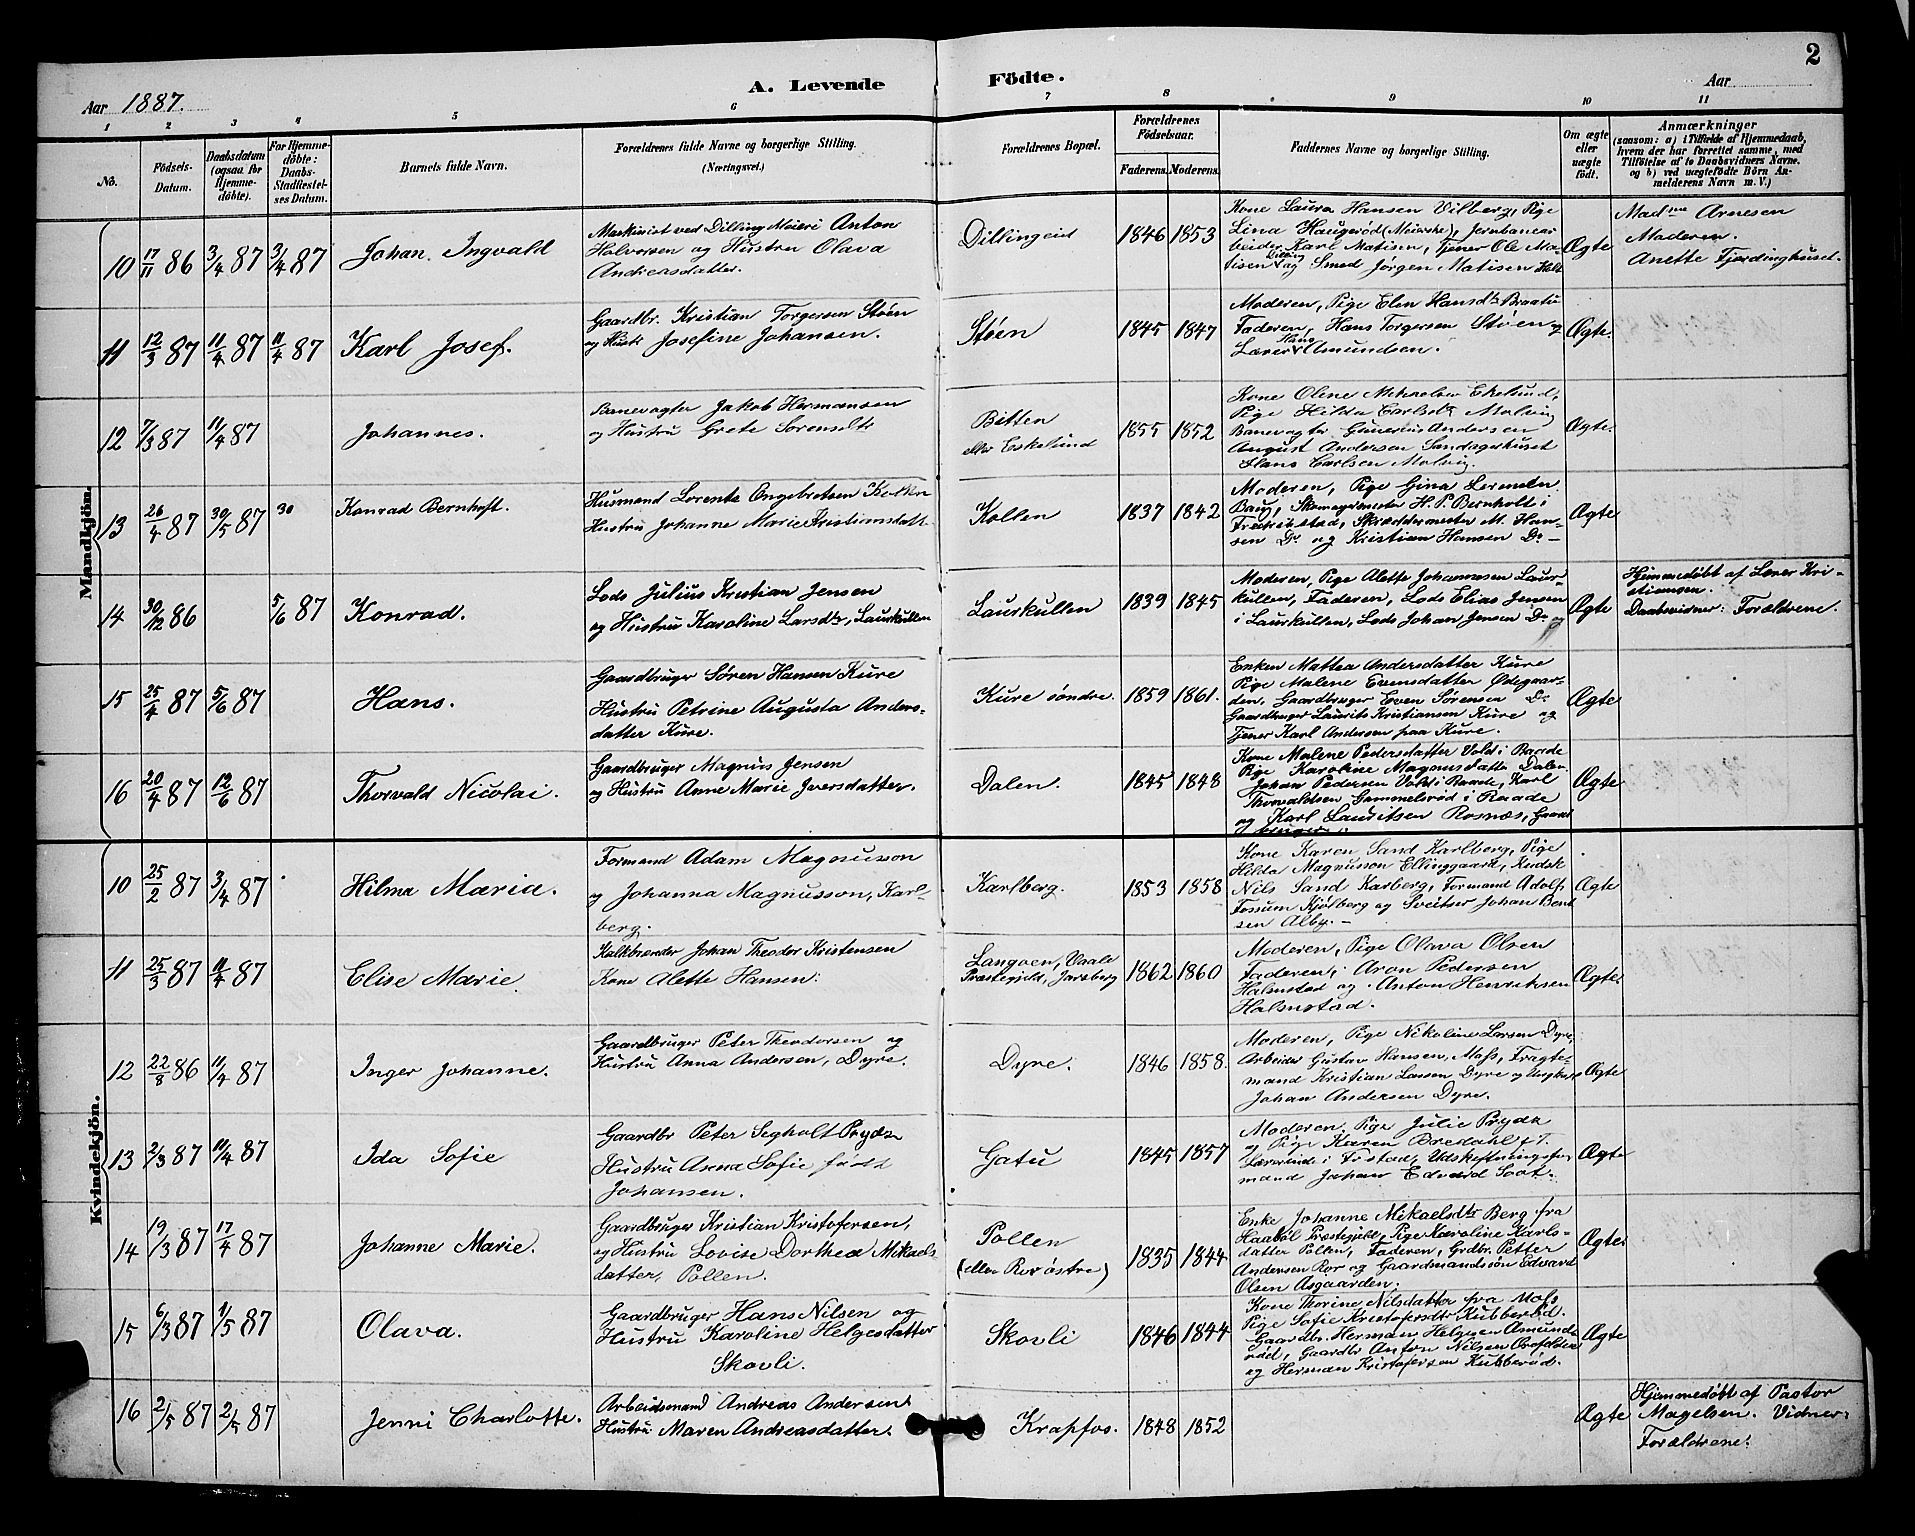 2
A. Levende Födte.
Aar 1887.
Aar
1 2 3 4 5 6 7 8 9 10 11
No.
Födsels-Datum.
Daabsdatum (ogsaa for Hjemmedöbte).
For Hjemmedöbte: Daabs-Stadfæstelses Datum.
Barnets fulde Navn.
Forældrenes fulde Navne og borgerlige Stilling.
(Næringsvei.)
Forældrenes Bopæl.
Forældrenes Födselsaar.
Faderens. Moderens.
Faddernes Navne og borgerlige Stilling.
Om ægte eller uægte født.
Anmærkninger
(saasom: a) i Tilfælde af Hjemmedaab, hvem der har forrettet samme, med Tilføielse af to Daabsvidners Navne. og b) ved uægtefødte Börn Anmelderens Navn m. V.)
Mandkjön.
10 17/11 86 3/4 87 3/4 87 Johan Ingvald
Maskinist ved Dilling Meieri Anton
Halvorsen og Hustru Olava
Andreasdatter.
Dillingeid 1846 1853
Kone Laura Hansen Vilberg, Pige
Lina Haugerød (Meierske), Jernbanearbeider
Karl Matisen, Tjener Ole Matisen
Dilling og Smed Jørgen Matisen
Ægte
Madme Arnesen
Moderen.
Anette Fjerdinghuset.
11 12/3 87 11/4 87 11/4 87 Karl Josef.
Gaardbr. Kristian Torgersen Støen
og Hustr Josefine Johansen.
Støen 1845 1847
Moderen, Pige Elen Hansdtr Braatu
Faderen, Hans Torgersen Støen og
Lærer Hans Amundsen.
Ægte.
12 7/3 87 11/4 87 Johannes.
Banevogter Jakob Hermansen
og Hustru Grete Sorensdtr
Bitten
eller Eskelund 1855 1852
Kone Oline Mikaelsen Ekelund,
Pige Hilda Carlsdtr Molvig
Banevogter Gunerius Andersen
August Andersen Sandagerhuset
Hans Carlsen Molvig.
Ægte.
13 26/4 87 30/5 87 30 Konrad Bernhoft.
Husmand Lorents Engebretsen Kollen
Hustru Johanne Marie Kristiansdatt.
Kollen 1837 1842
Moderen, Pige Gina Lorentsen
Skomagermester H. P. Bernholt i
Fredrikstad, Skræddermester M. Hansen
Do og Kristian Hansen Do
Ægte
14 30/12 86 5/6 87 Konrad.
Lods Julius Kristian Jensen
og Hustru Karoline Larsdtr, Laurkullen
Laurkullen 1839 1845
Moderen, Pige Alette Johannesen Laurkullen,
Faderen, Lods Elias Jensen
i Laurkullen, Lods Johan Jensen Do og
Ægte
Hjemmedøbt af Lærer Kristiansen.
Daabsvidner: Forældrene.
15 25/4 87 5/6 87 Hans.
Gaardbruger Søren Hansen Kure
Hustru Petrine Augusta Andersdatter
Kure.
Kure søndre. 1859 1861.
Enken Mattea Andersdatter Kure
Pige Malene Evensdatter Ødegaarden,
Gaardbruger Even Sørensen Do
Gaardbruger Laurits Kristiansen Kure og
Tjener Karl Andersen paa Kure.
Ægte
16 20/4 87 12/6 87 Thorvald Nicolai.
Gaardbruger Magnus Jensen
og Hustru Anne Marie Iversdatter.
Dalen. 1845 1848
Kone Malene Pedersdatter Vold i Raade
Pige Karoline Magnusdatter Dalen
Johan Pedersen Vold i Raade, Karl
Thorvaldsen Gammelsrød i Raade
og Karl Lauritsen Rosnæs, Gaardbruger.
Ægte
Kvindekjön.
10 25/2 87 3/4 87 Hilma Maria.
Formand Adam Magnusson
og Johanna Magnusson, Karlberg.
Karlberg. 1853 1858
Kone Karen Sand Karlberg, Pige
Hilda Magnusson Ellinggaard, Kudsk
Nils Sand Karberg, Formand Adolf
Fossum Kjølberg og Sveitser Johan Bentsen
Alby.
Ægte
11 25/3 87 11/4 87 Elise Marie.
Kalkbrænder Johan Theodor Kristensen
Kone Alette Hansen.
Langoen, Vaale
Præstegjeld, Jarlsberg 1862 1860
Moderen, Pige Olava Olsen
Faderen, Aron Pedersen
Halmstad og Anton Henriksen
Halmstad.
Ægte.
12 22/8 86 11/4 87 Inger Johanne.
Gaardbruger Peter Theodorsen og
Hustru Anna Andersen, Dyre.
Dyre. 1846 1858.
Moderen, Pige Nikoline Larsen Dyre,
Arbeider Gustav Hansen, Moss, Fragtemand
Kristian Larsen Dyre og Ungkarl
Johan Andersen Dyre.
Ægte
13 2/3 87 11/4 87 Ida Sofie
Gaardbr Peter Segholt Prydz
Hustru Anna Sofie født
Johansen.
Gatu 1845 1857
Moderen, Pige Julie Prydz
og Pige Karen Bredahl
Lærerinde i Fstad, Udskiftningsformand
Johan Edvard Soot.
Ægte
14 19/3 87 17/4 87 Johanne Marie.
Gaardbruger Kristian Kristofersen,
og Hustru Lovise Dorthea Mikaelsdatter,
Pollen.
Pollen
(eller Rør østre) 1835 1844
Enke Johanne Mikaelsdtr Berg fra
Haabøl Præstegjeld, Pige Karoline Karlsdatter
Pollen, Faderen, Grdbr. Petter
Andersen Rør og Gaardmandssøn Edvard
Olsen Asgaarden.
Ægte.
15 6/3 87 1/5 87 Olava.
Gaardbruger Hans Nilsen og
Hustru Karoline Helgesdatter
Skovli.
Skovli 1846 1844
Kone Thorine Nilsdatter fra Moss
Pige Sofie Kristofersdtr Kubberød.
Gaardbr. Herman Helgesen Amundrød,
Gaardbr Anton Nilsen
og Herman Kristofersen Kubberød.
Ægte
16 2/5 87 2/5 87 Jenni Charlotte.
Arbeidsmand Andreas Andersen
Hustru Maren Andreasdatter.
Krapfos. 1848 1852
Ægte
Hjemmedøbt af Pastor
Magelsen. Vidner:
Forældrene.